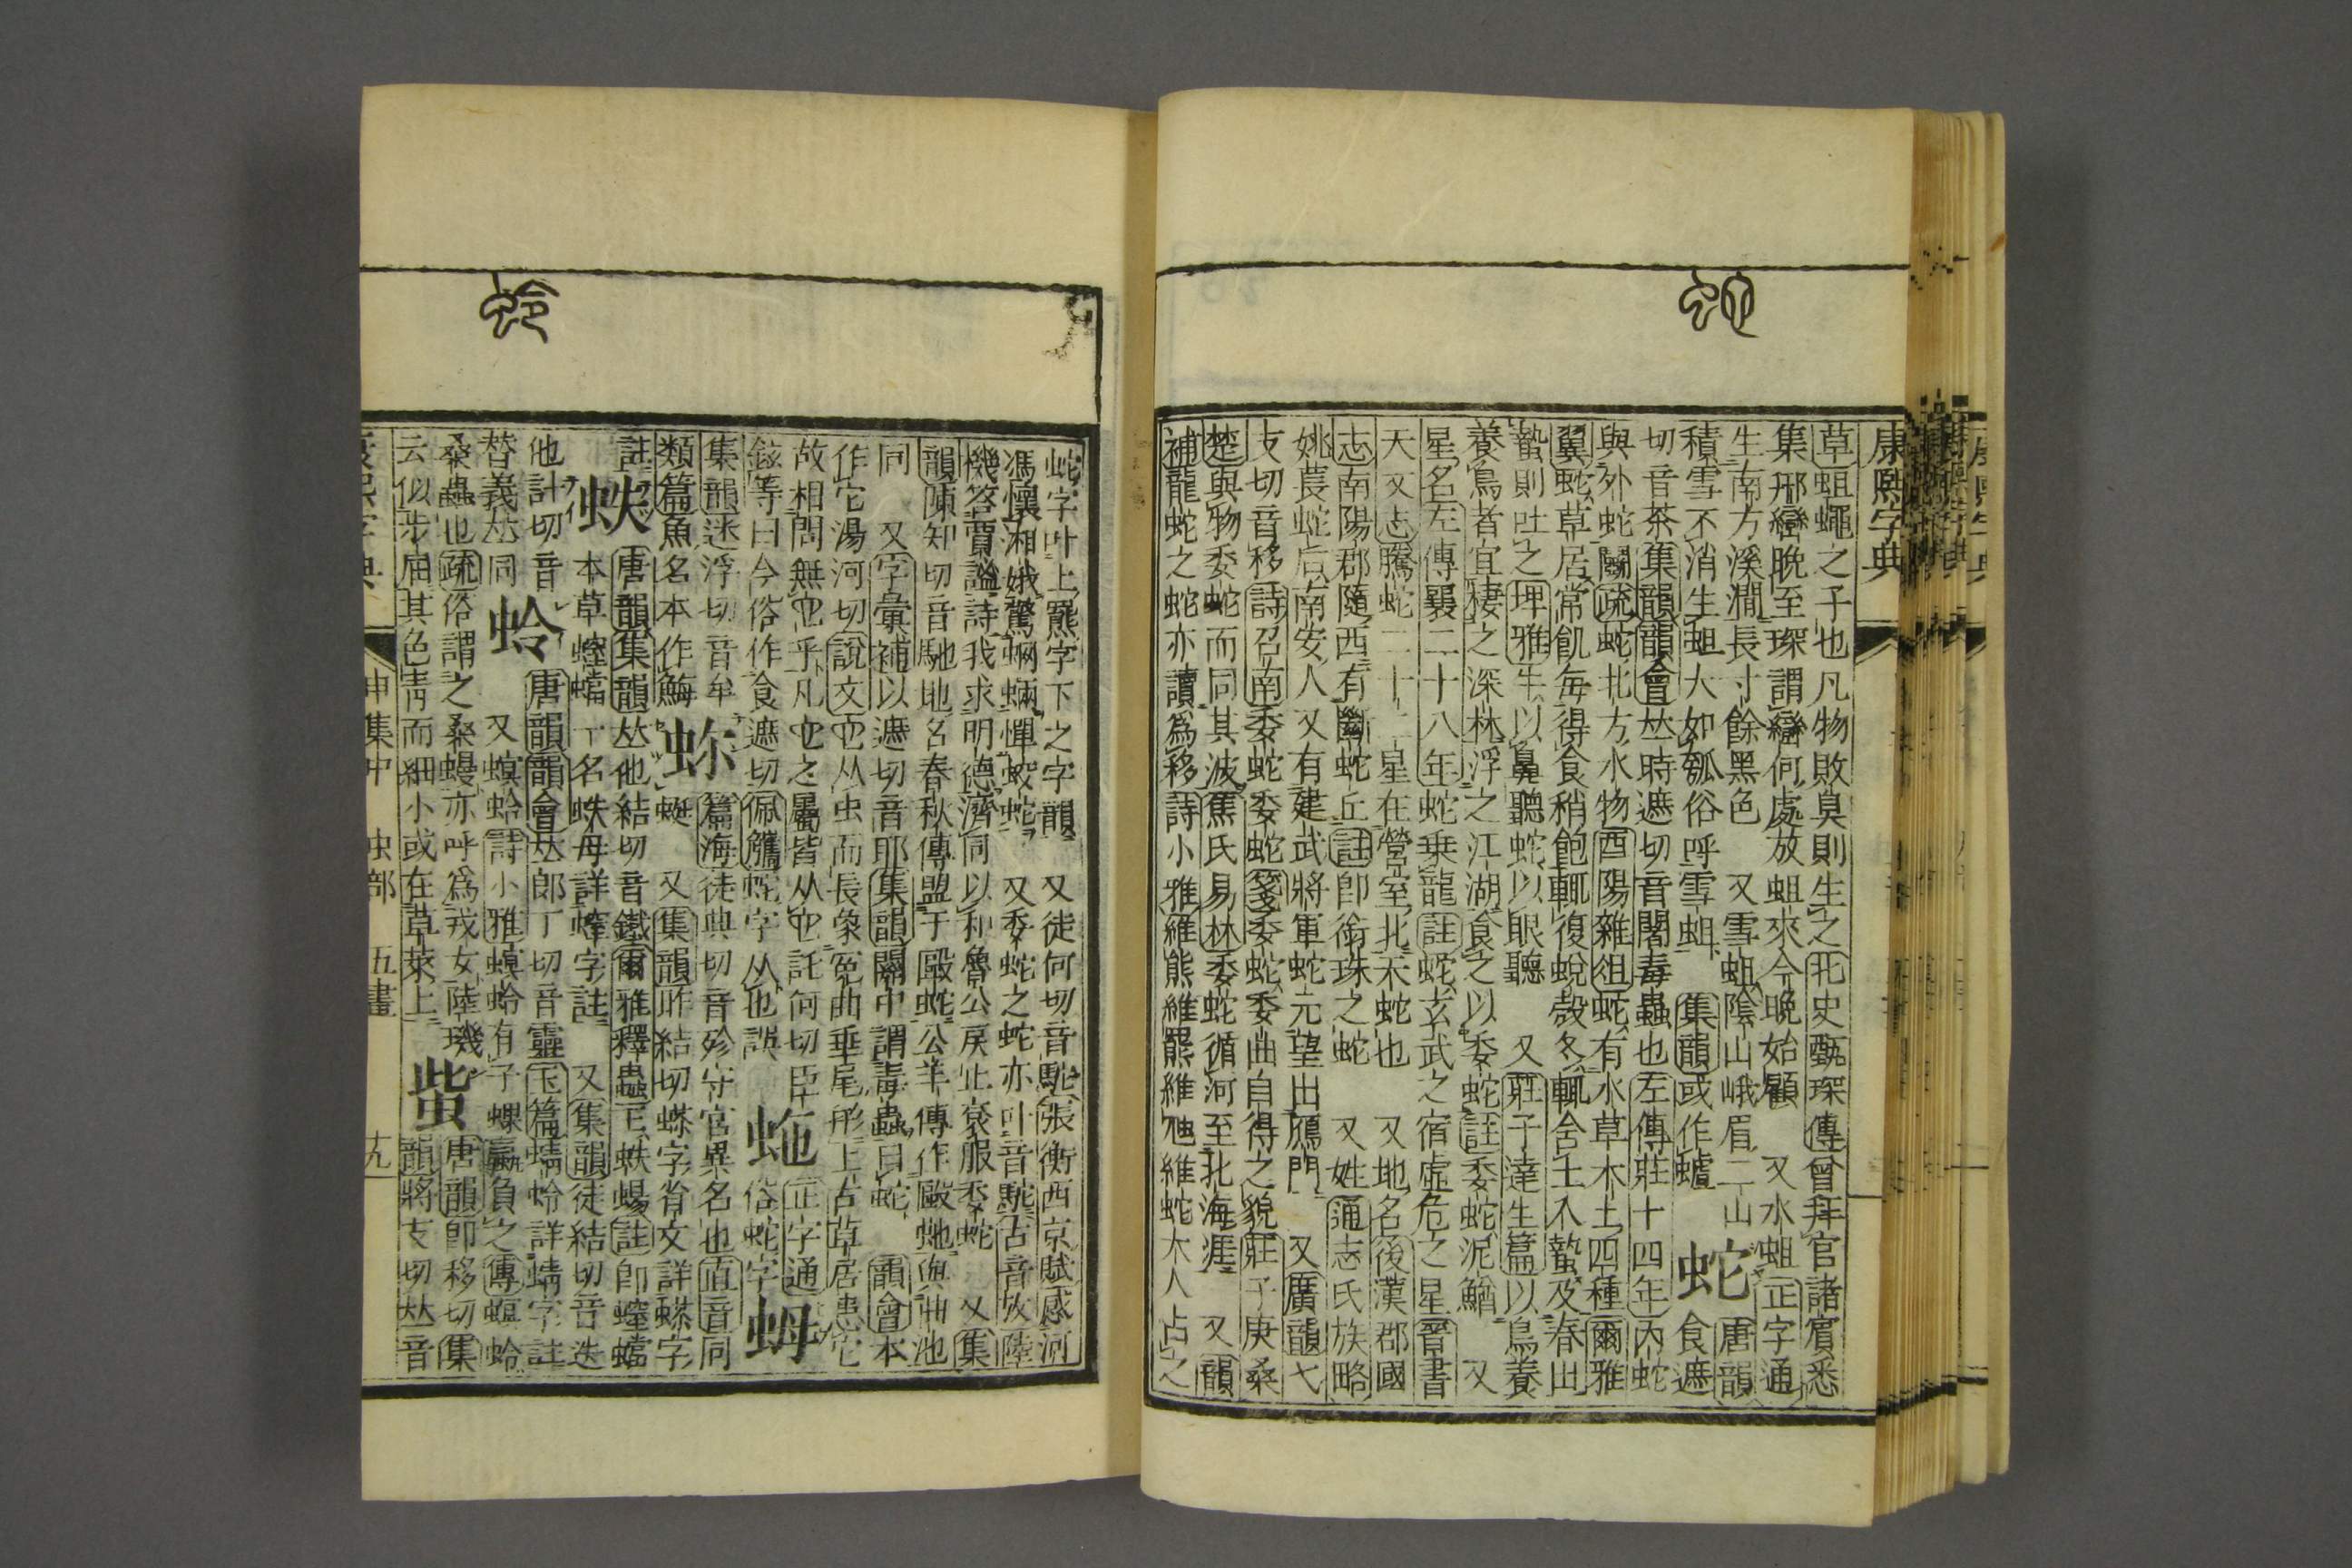 康熙字典
草蛆蠅之子也凡物敗臭則生之北史甄琛傳曾拜官諸賓悉
集邢巒晩至琛謂巒何處放蛆來今晚始顧 又水蛆正字通
生南方溪澗長寸餘黑色 又雪蛆陰山峨眉二山
積雪不消生蛆大如瓠俗呼雪蛆 集韻或作蠦 蛇 唐韻食遮
切音荼集韻韻會𠀤時遮切音闍毒蟲也左傳莊十四年內蛇
與外蛇鬭疏蛇北方水物酉陽雜俎蛇有水草木土四種爾雅
翼蛇草居常飢每得食稍飽輒復蛻殼冬輒含土入蟄及春出
蟄則吐之埤雅牛以鼻聽蛇以眼聽 又莊子達生篇以鳥養
養鳥者宜棲之深林浮之江湖食之以委蛇註委蛇泥鰌 又
星名左傳襄二十八年蛇乗龍註蛇玄武之宿虛危之星晉書
天文志騰蛇二十二星在營室北天蛇也 又地名後漢郡國
志南陽郡隨西有斷蛇丘註卽銜珠之蛇 又姓通志氏族略
姚萇蛇后南安人又有建武將軍蛇元望出鴈門 又廣韻弋
支切音移詩召南委蛇委蛇箋委蛇委曲自得之貌莊子庚桑
楚與物委蛇而同其波焦氏易林委蛇循河至北海涯 又韻
補龍蛇之蛇亦讀爲移詩小雅維熊維羆維虺維蛇大人占之
蛇字叶上羆字下之字韻 又徒何切音駝張衡西京賦感河
馮懷湘娥驚蜽蜽憚蛟蛇 又委蛇之蛇亦叶音駝古音攷陸
機答賈謐詩我求明德濟同以和魯公戾止袞服委蛇 又集
韻陳知切音馳地名春秋傳盟于毆蛇公羊傳作毆虵與曲池
同 又字彙補以遮切音耶集韻關中謂毒蟲曰蛇 韻會本
作它湯河切說文它从虫而長象冤曲垂尾形上古草居患它
故相問無它乎凡它之屬皆从它託何切臣
鉉等曰今俗作食遮切佩觿蛇字从也誤 虵 正字通俗蛇字 蛑
集韻迷浮切音牟
類篇魚名本作䱕 蚞 篇海徒典切音殄守官異名也直音同
蜓 又集韻咋結切蠽字省文詳蠽字
註 蛈 唐韻集韻𠀤他結切音鐵爾雅釋蟲王蛈蜴註卽螲蟷
本草螲蟷一名蛈母詳螲字註 又集韻徒結切音迭
他計切音
替義𠀤同 蛉 唐韻韻會𠀤郎丁切音靈玉篇蜻蛉詳蜻字註
又螟蛉詩小雅螟蛉有子蜾蠃負之傳螟蛉
桑蟲也疏俗謂之桑蟃亦呼爲戎女陸璣
云似步屈其色靑而細小或在草萊上 蚩 唐韻卽移切集
韻將支切𠀤音
康熙字典 申集中 虫部 五畫 十九